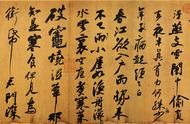 汙燕支雪闇中偷負
去夜半真有力何殊少
年子病起須已白
春江欲入戶雨勢來
不已雨小屋如漁舟濛濛
水雲裏空庖煮寒菜
破竈燒濕葦那
知是寒食但見烏
銜帋君門深